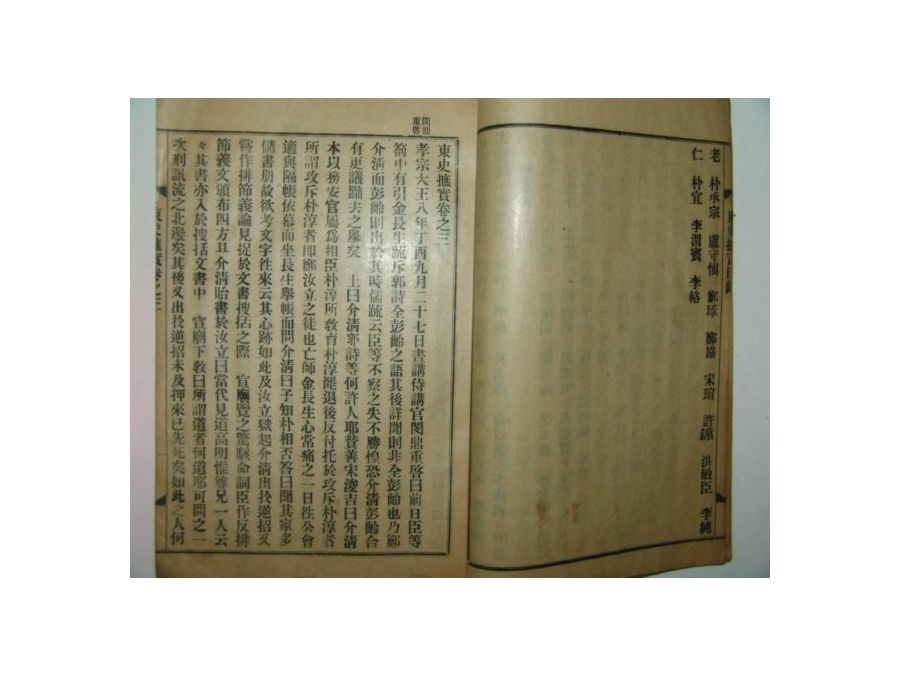 老 朴丞宗 盧守愼 鄭琢 鄭協 宋瑄 許鏛 洪敏臣 李純
仁 朴宜 李渭賓 李輅
閔鼎
重啓
東史摭實卷之三
孝宗大王八年丁酉九月二十七日晝講侍講官閔鼎重啓曰前日臣等
箚中有引金長生疏斥郭詩全彭齡之語其後詳聞則非全彭齡也乃鄭
介淸而彭齡則出於其時儒疏云臣等不察之失不勝惶恐介淸彭齡合
有更議黜去之擧矣 上曰介淸郭詩等何許人耶贊善宋浚吉曰介淸
本以務安官屬爲相臣朴淳所敎育朴淳罷退後反付托於攻斥朴淳者
所謂攻斥朴淳者卽鄭汝立之徒也亡師金長生心常痛之一日往公會
適與隔帳依幕而坐長生擧帳而問介淸曰子知朴相否答曰聞其家多
儲書册故欲考文字往來云其心跡如此及汝立獄起介淸出於逆招又
嘗作排節義論見捉於文書搜括之際 宣廟覽之驚駭命詞臣作反排
節義文頒布四方且介淸貽書於汝立曰當代見道高明惟尊兄一人云
々其書亦入於搜括文書中 宣廟下敎曰所謂道者何道耶可問之一
次刑訊流之北邊矣其後又出於逆招未及押來已先死矣如此之人何
東史摭實卷之三